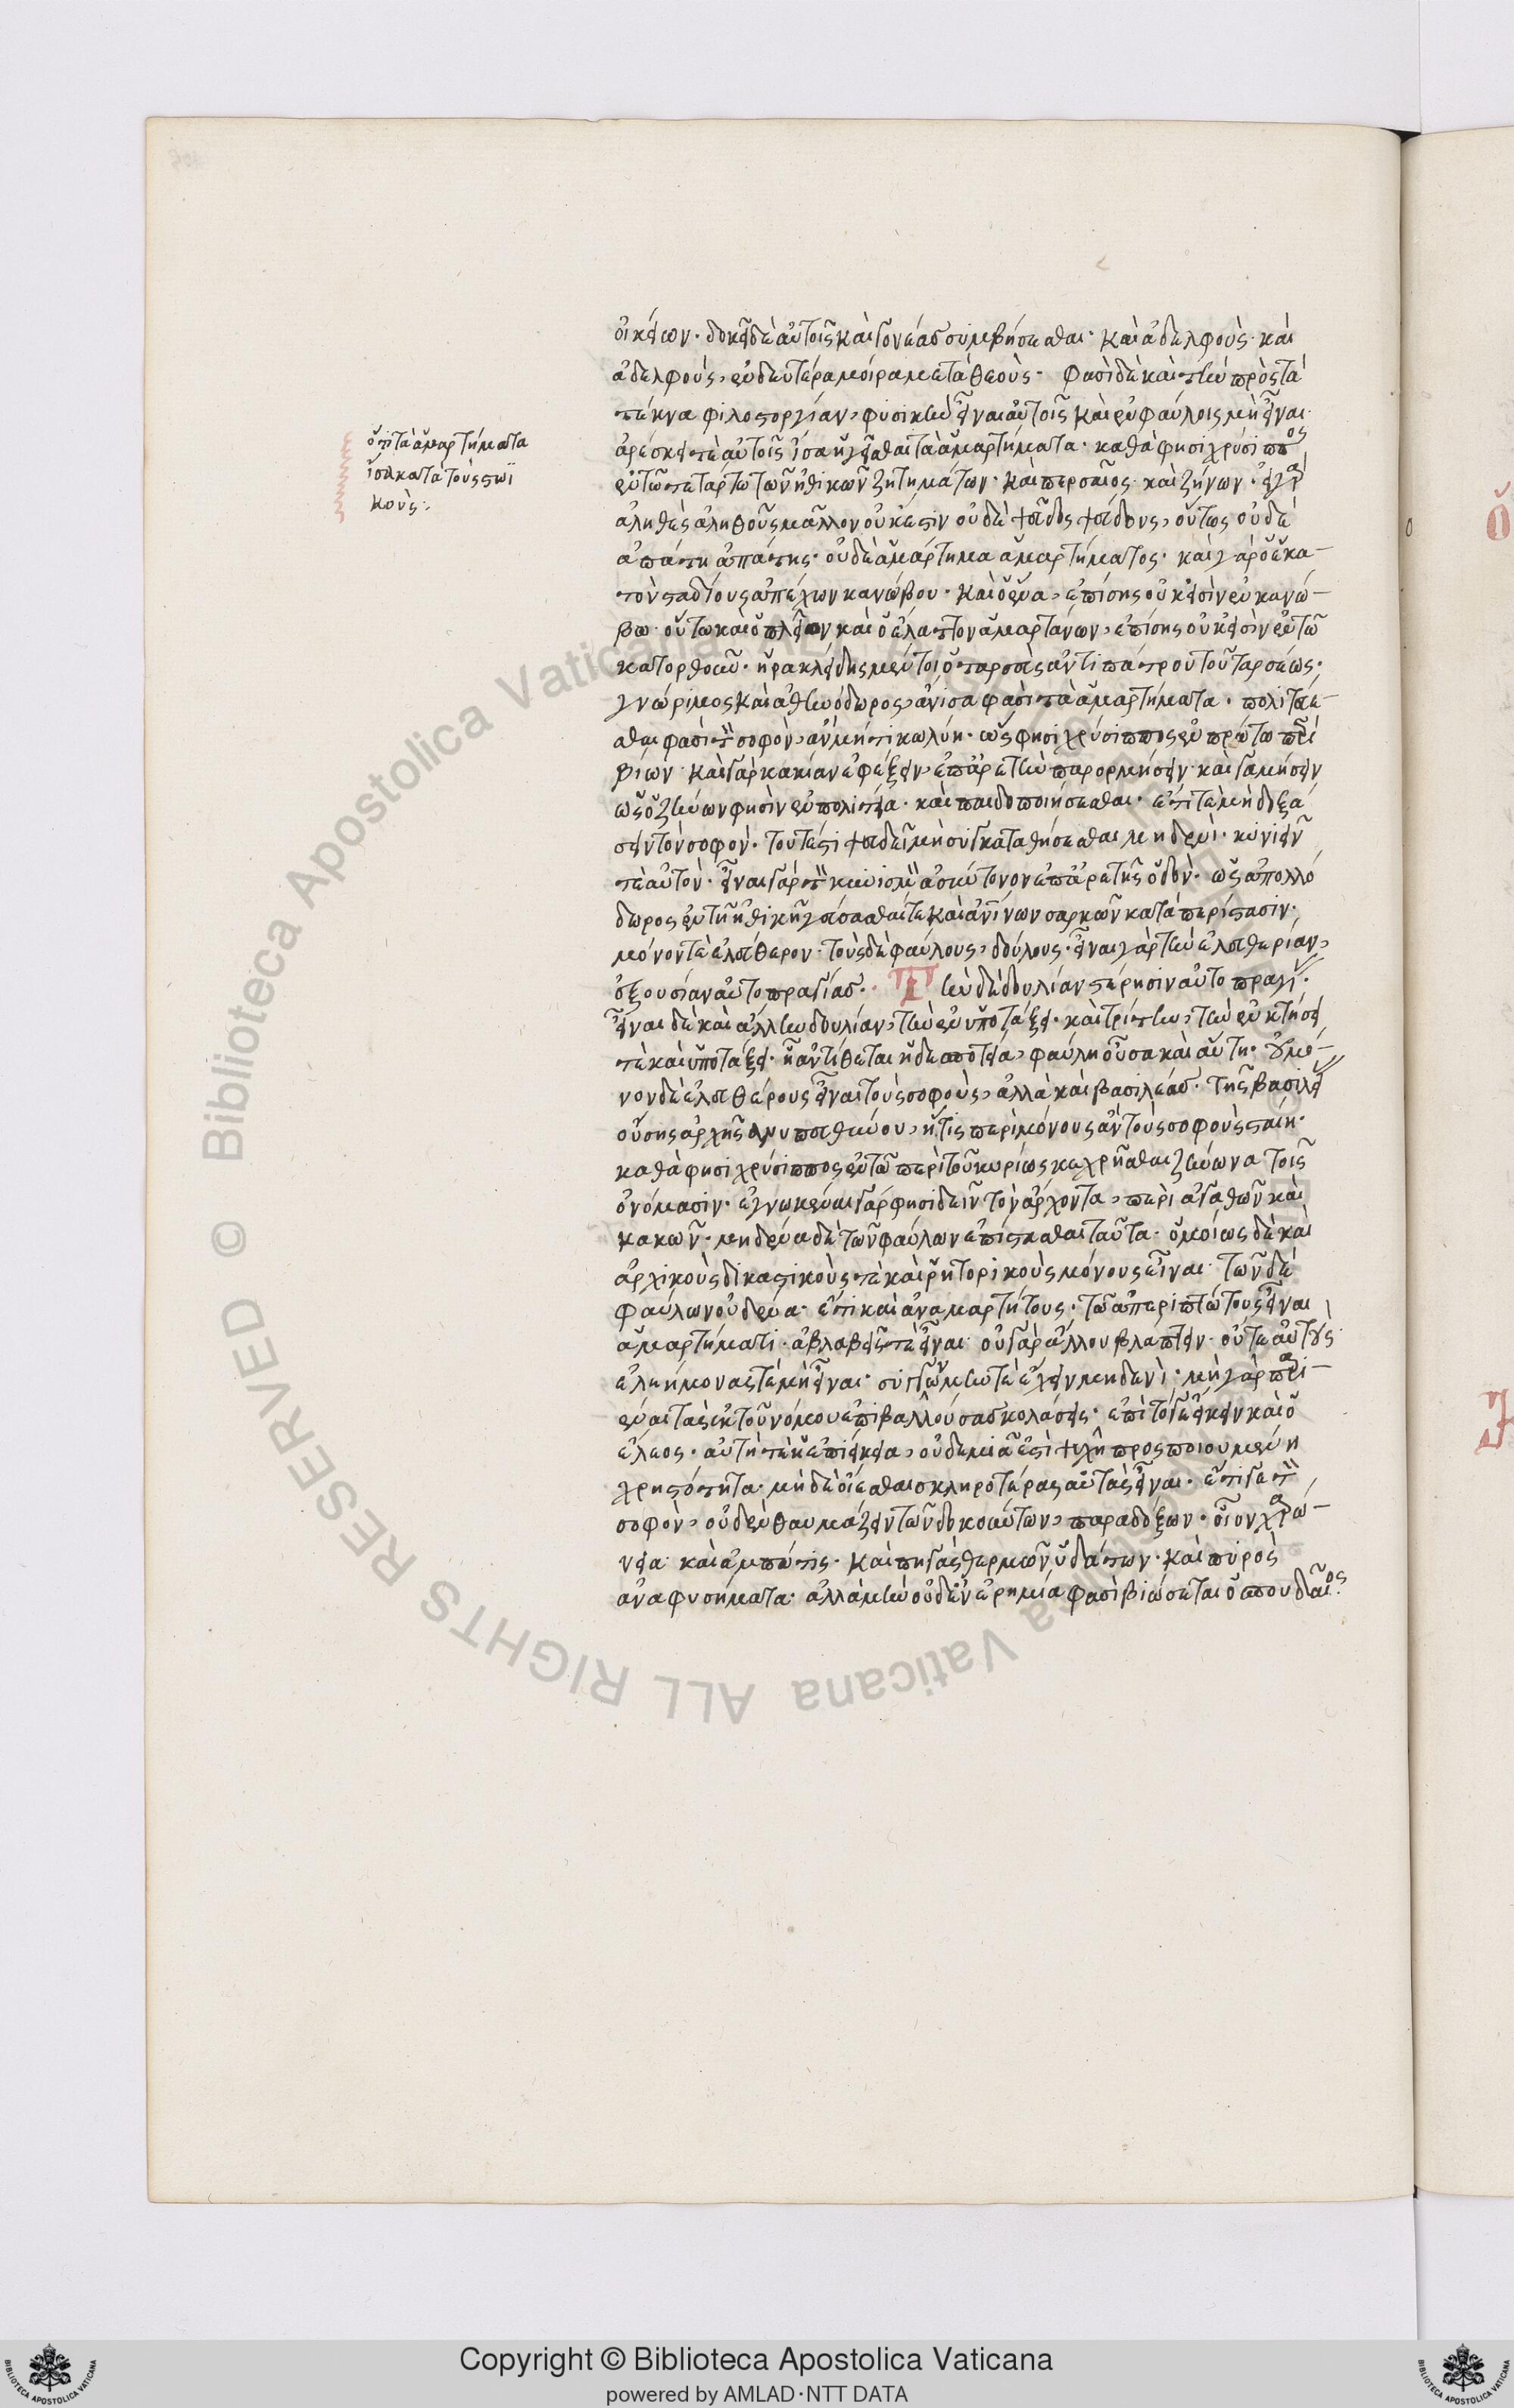 οἰκείων. δοκεῖ δὲ αὐτοῖς καὶ γονέας συμβήσεσθαι. καὶ ἀδελφοὺς. καὶ
ἀδελφούς, ἐν δευτέρα μοίρα μετὰ θεοὺς. φασὶ δὲ καὶ τὴν πρὸς τὰ
τέκνα φιλοστοργίαν, φυσικὴν εἶναι αὐτοῖς καὶ ἐν φαύλοις μὴ εἶναι.
ἀρέσκει τὲ αὐτοῖς ἴσα ἡγεῖσθαι τὰ ἁμαρτήματα. καθά φησι χρύσιππος
ἐν τῶ τετάρτω τῶν ἠθικῶν ζητημάτων. καὶ περσαῖος καὶ ζήνων. εἰ γὰρ
ἀληθὲς ἀληθοῦς μᾶλλον οὐκ ἔστιν οὐδὲ ψεῦδος ψεύδους, οὕτως οὐδὲ
ἀπάτη ἀπάτης. οὐδὲ ἁμάρτημα ἁμαρτήματος. καὶ γὰρ ὁ ἑκα-
τὸν σταδίους ἀπέχων κανώβου. καὶ ὁ ἕνα, ἐπίσης οὐκ εἰσὶν ἐν κανώ-
βω. οὕτω καὶ ὁ πλεῖον καὶ ὁ ἔλαττον ἁμαρτάνων, ἐπίσης οὐκ εἰσὶν ἐν τῶ
κατορθοῦν. ἡρακλείδης μέντοι ὁ ταρσεὺς ἀντιπάτρου τοῦ ταρσέως.
γνώριμος καὶ ἀθηνόδωρος, ἄνισα φασὶ τὰ ἁμαρτήματα. πολιτεύε-
σθαι φασὶ τὸν σοφὸν, ἂν μή τι κωλύη. ὥς φησι χρύσιππος ἐν πρώτω περὶ
βίων. καὶ γὰρ κακίαν ἐφέξειν, ἐπ' ἀρετὴν παρορμήσειν. καὶ γαμήσειν
ὡς ὁ ζήνων φησὶν ἐν πολιτεία. καὶ παιδοποιήσεσθαι. ἔτι τὲ μὴ δοξά
σειν τὸν σοφόν. τουτέστι ψεύδει μὴ συγκαταθήσεσθαι μηδενὶ. κυνιεῖν
τὲ αὐτὸν. εἶναι γὰρ τὸν κυνισμὸν σύντονον ἐπ' ἀρετῆς ὁδὸν. ὡς ἀπολλό
δωρος ἐν τῆ ἠθικῆ γεύσασθαί τε καὶ ἀνθρωπίνων σαρκῶν κατὰ περίστασιν.
μόνον τὲ ἐλεύθερον. τοὺς δὲ φαύλους, δούλους. εἶναι γὰρ τὴν ἐλευθερίαν,
ἐξουσίαν αὐτοπραγίας. Τὴν δὲ δουλίαν στέρησιν αὐτοπραγί.
εἶναι δὲ καὶ ἄλλην δουλίαν, τὴν ἐν ὑποτάξει. καὶ τρίτην, τὴν ἐν κτήσει
τὲ καὶ ὑποτάξει. ἧ ἀντίθεται ἡ δεσποτεία, φαύλη οὖσα καὶ αὕτη. οὐ μό-
νον δὲ ἐλευθέρους εἶναι τοὺς σοφοὺς, ἀλλὰ καὶ βασιλέας. τῆς βασιλεί
οὔσης ἀρχῆς ἀνυπευθύνου, ἥτις περὶ μόνους ἂν τοὺς σοφοὺς σταίη.
καθά φησι χρύσιππος ἐν τῶ περὶ τοῦ κυρίως κεχρῆσθαι ζήνωνα τοῖς
ὀνόμασιν. ἐγνωκέναι γάρ φησι δεῖν τὸν ἄρχοντα, περὶ ἀγαθῶν καὶ
κακῶν. μηδένα δὲ τῶν φαύλων ἐπίστασθαι ταῦτα. ὁμοίως δὲ καὶ
ἀρχικοὺς δικαστικοὺς τὲ καὶ ῥητορικοὺς μόνους εἶναι. τῶν δὲ
φαύλων οὐδένα. ἔτι καὶ ἀναμαρτήτους. τῶ ἀπεριπτώτους εἶναι
ἁμαρτήματι. ἀβλαβεῖς τὲ εἶναι. οὐ γὰρ ἄλλου βλάπτειν. οὔτε αὐτοὺς
ἐλεήμονας τὲ μὴ εἶναι. συγγνώμην τὲ ἔχειν μηδενὶ. μὴ γὰρ παρι-
έναι τὰς ἐκ τοῦ νόμου ἐπιβαλλούσας κολάσεις. ἐπεὶ τό γε εἴκειν καὶ ὁ
ἔλεος. αὐτή τε ἡ ἐπιείκεια, οὐδεμία ἐστὶ ψυχῆ προσποιουμένη
χρηστότητα. μὴ δὲ οἴεσθαι σκληροτέρας αὐτὰς εἶναι. ἔτι γε τὸν
σοφὸν, οὐδὲν θαυμάζειν τῶν δοκούντων, παραδόξων. οἷον χαρώ-
νεια. καὶ ἀμπώτις. καὶ πηγὰς θερμῶν ὑδάτων. καὶ πυρὸς
ἀναφυσήματα. ἀλλὰ μὴν οὐδ' ἐν ἐρημία φασὶ βιώσεται ὁ σπουδαῖος.
ὅτι τὰ ἁμαρτήματα
ἴσα κατὰ τοὺς στωϊ
κοὺς:
Copyright © Biblioteca Apostolica Vaticana
powered by AMLAD·NTT DATA